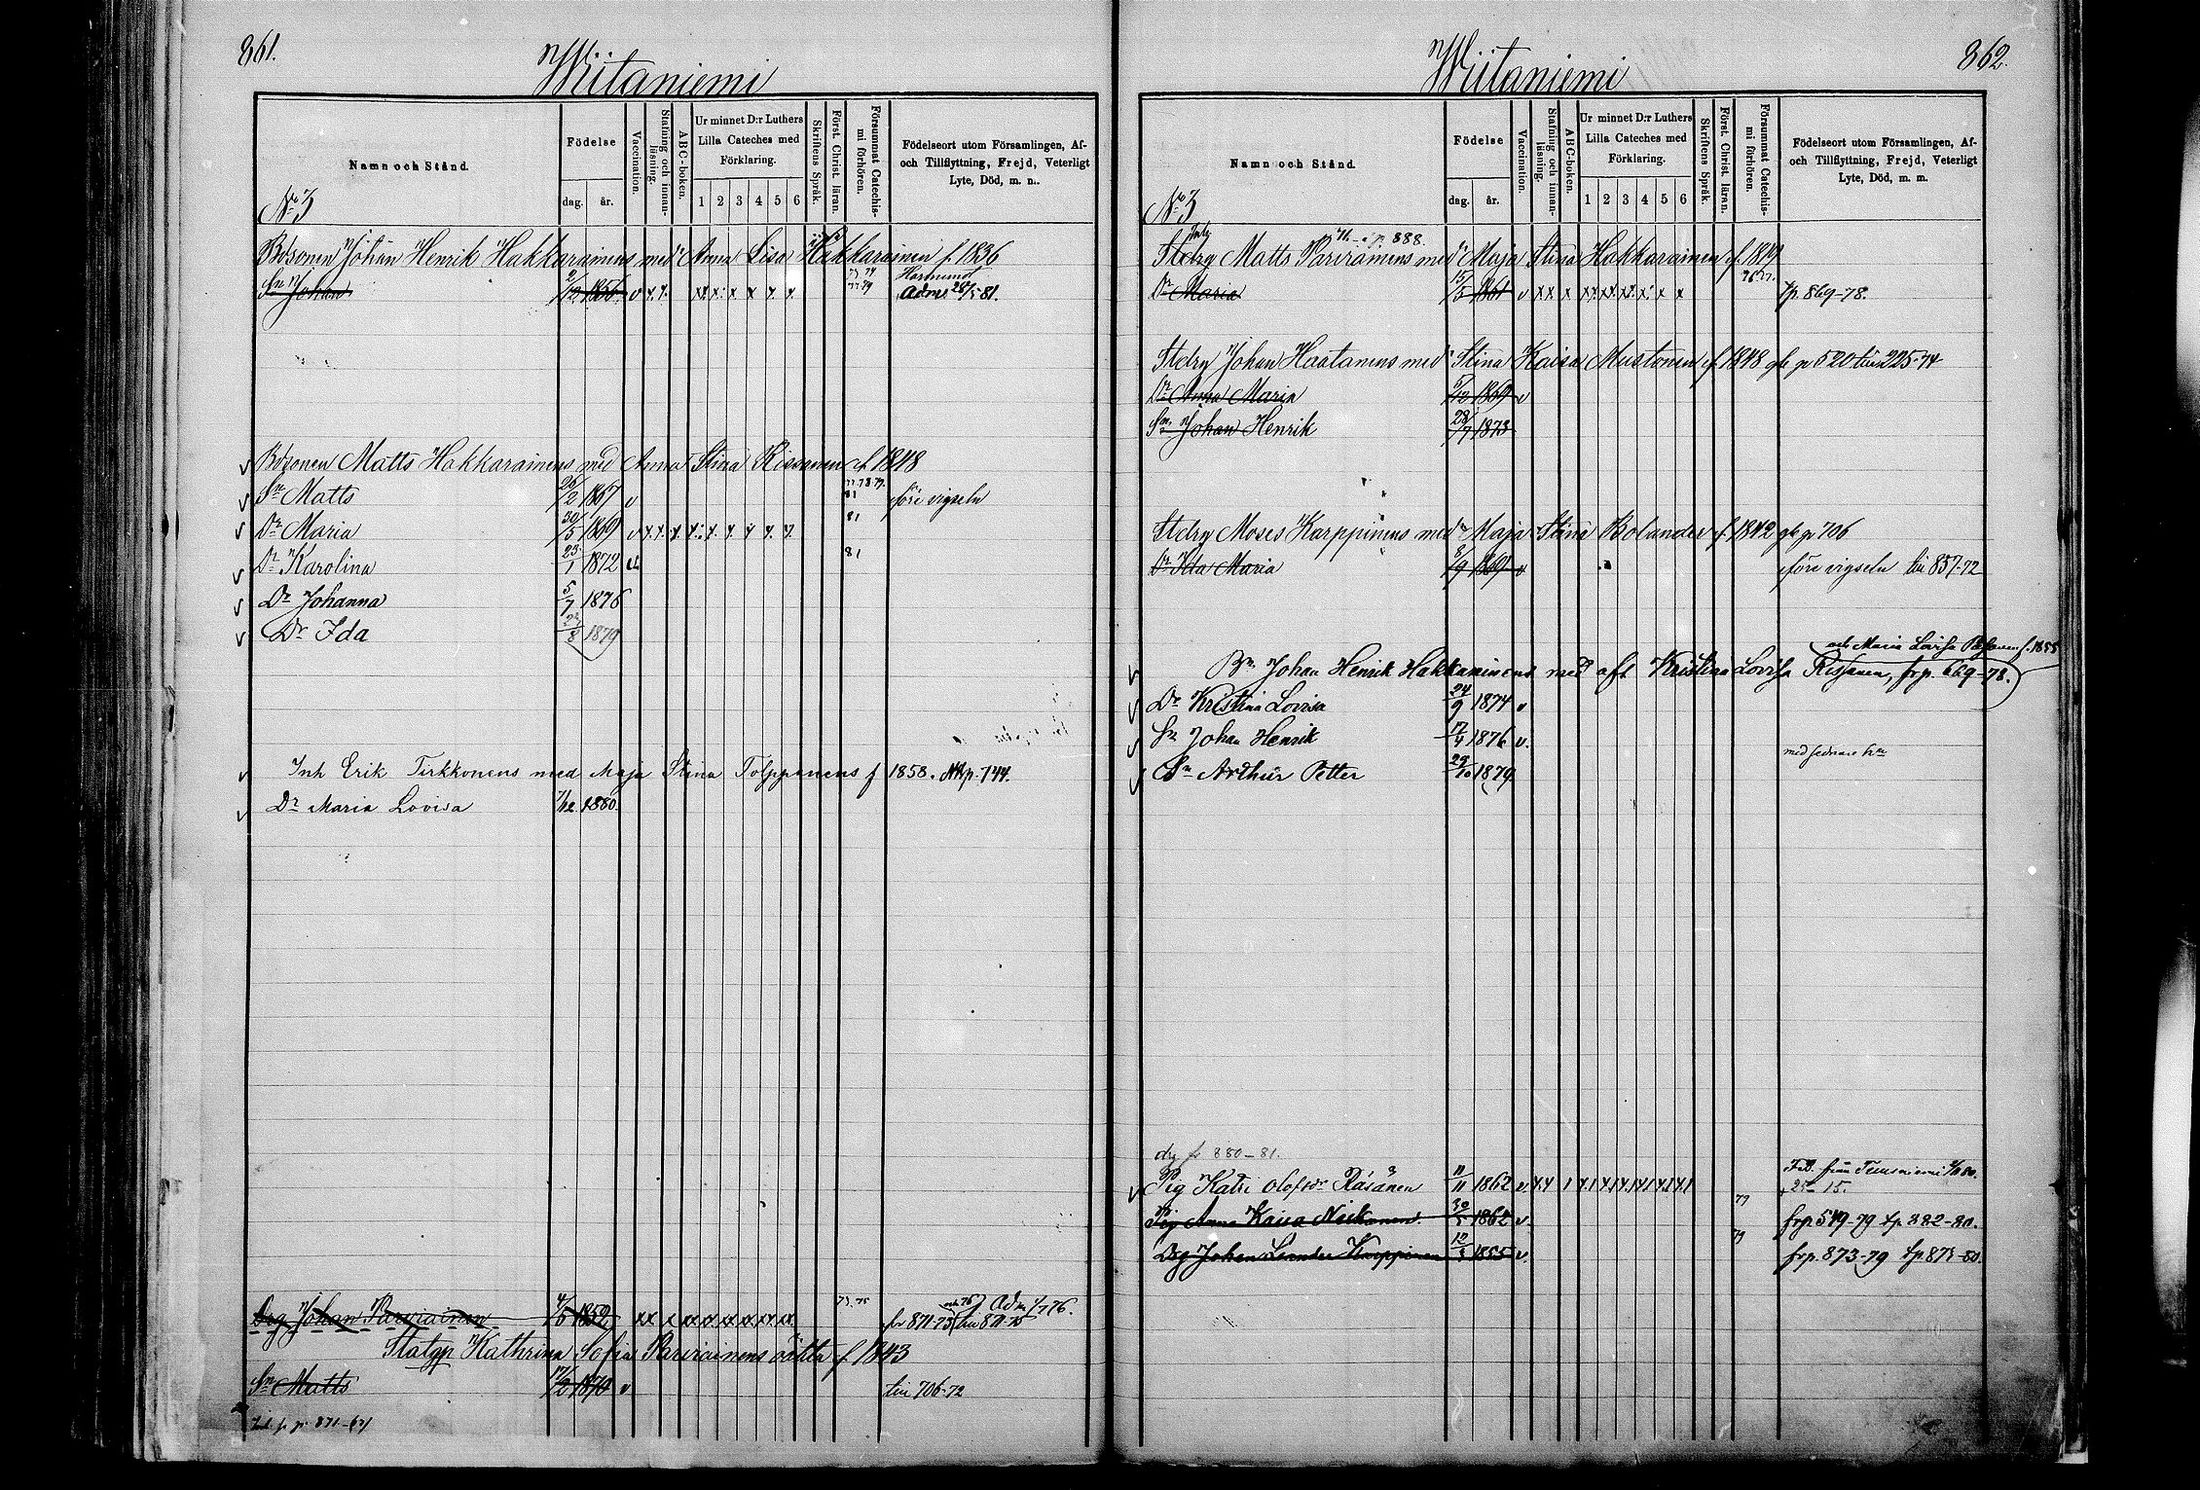 861.
Wiitaniemi
Namn och Stånd.
Födelse
dag.
år.
Vaccination.
Stafning och innan-
läsning.
ABC-boken.
Ur minnet D:r Luthers
Lilla Cateches med
Förklaring.
1 2 3 4 5 6
Skriftens Språk.
Först. Christ. läran.
Försummat Catechis-
mi förhören.
Födelseort utom Församlingen, Af-
och Tillflyttning, Frejd, Veterligt
Lyte, Död, m. n..
No 3
Bdsonen Johan Henrik Hakkarainens med Anna Lisa Hakkarainen f. 1836
Sn Johan 2/12 1856 v x x x x x x x x Adms 28/5 81.
Bdsonen Matts Hakkarainens med Anna Stina Rissanen f. 1848
Sn Matts 26/2 1867 v 77.78.79. 81 före vigseln
Dr Maria 30/5 1869 v x x x x x x x x x 81
Dr Karolina 23/1 1872 v 81
Dr Johanna 5/7 1876
Dr Ida 22/8 1879
Inh Erik Tirkkonens med Maja Stina Tolppanens f 1858. Nkp. 144.
Dr Maria Lovisa 7/12 1880.
Drg Johan Parviainen 4/5 1852 xx x xx xx xx xx xx xx 75.75 fr 871-73 till 871-75 Adm 4/7 76.
Statgp Kathrina Sofia Parviainens oätta f. 1843
Sn Matts 17/2 1870 v till 706-72
871-67
862.
Wiitaniemi
Namn och Stånd.
Födelse
dag.
år.
Vaccination.
Stafning och innan-
läsning.
ABC-boken.
Ur minnet D:r Luthers
Lilla Cateches med
Förklaring.
1 2 3 4 5 6
Skriftens Språk.
Först. Christ. läran.
Försummat Catechis-
mi förhören.
Födelseort utom Församlingen, Af-
och Tillflyttning, Frejd, Veterligt
Lyte, Död, m. m.
No 3
p. 888.
Stdrg Matts Parviainens med Maja Stina Hakkarainen f. 1819
Dr Maria 15/5 1861 v x x x xx xx xx x x x 76.77. tp. 869-78.
Stdrg Johan Haatanens med Stina Kaisa Mustonen f. 1848 gb p 520 till 225-74
Dr Anna Maria 5/12 1869 v
Sn Johan Henrik 28/7 1873
Stdrg Moses Karppinens med Maja Stina Bolander f. 1842 gb p 706
Dr Ida Maria 8/9 1869 v före vigseln till 857-72
och Maria Lovisa f. 1855
Bn Johan Henrik Hakkarainens med afl Kristina Lovisa Rissanen, frp. 669-78.
Dr Kristina Lovisa 24/9 1874 v
Sn Johan Henrik 17/4 1876 v.
med sednare hn
Sn Arthur Petter 29/10 1879
drg fr 880-81.
Pig Katri Olofsdr Räsänen 11/11 1862 v. x x 1 x1 x1 x1 x1 x1 x1 från Tuusniemi 80.
25-15.
Pig Anna Kaisa Niskanen 30/5 1862 v. 79 frp. 519-79 tp. 882-80.
Drg Johan Leander Karppinen 12/3 1855 v. 79 frp. 873-79 tp. 873-80.